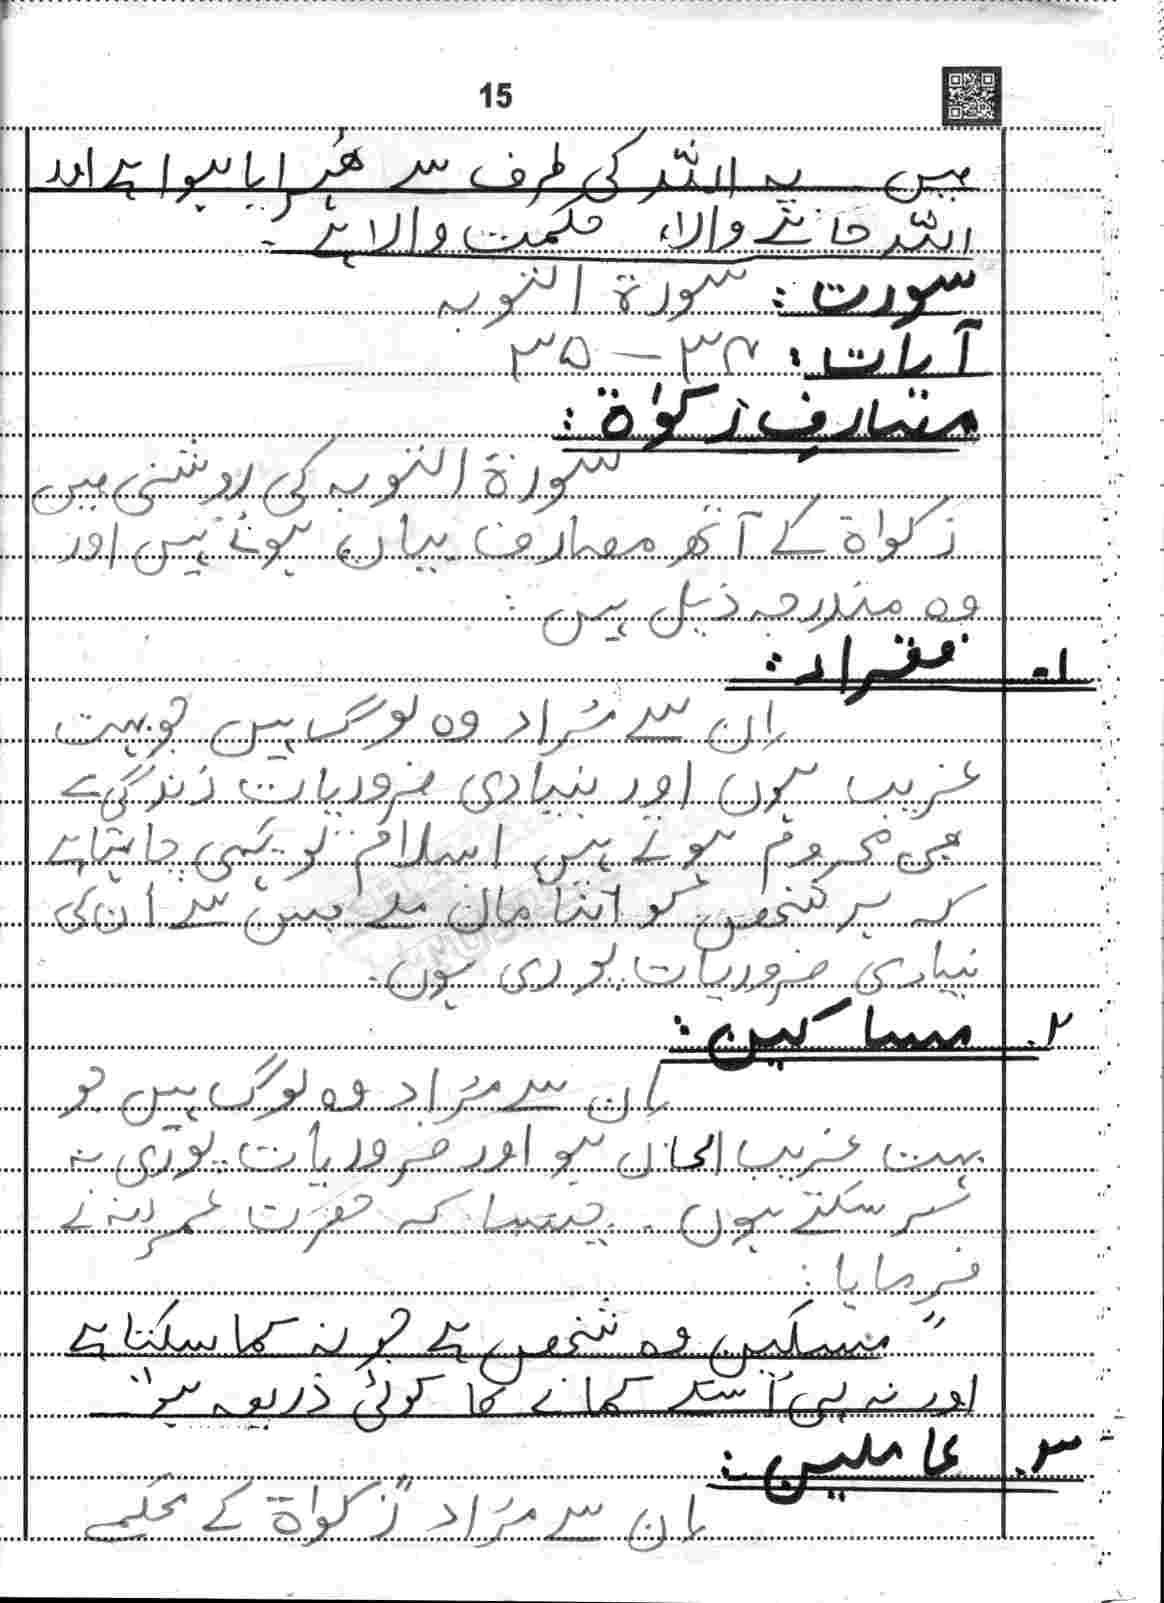 15
میں یہ اللہ کی طرف سے ٹھہرایا ہوا ہے اور
اللہ جاننے والا، حکمت والا ہے۔
سورت: سورۃ التوبہ
آیات: ۳۴ – ۳۵
مصارفِ زکوٰۃ:
سورۃ التوبہ کی روشنی میں
زکواۃ کے آٹھ مصارف بیاں ہوئے ہیں اور
وہ مندرجہ ذیل ہیں:
۱- فقراء:
اِن سے مُراد وہ لوگ ہیں جو بہت
غریب ہوں اور بنیادی ضروریات زندگی سے
محروم ہوتے ہیں اسلام تو یہی چاہتا ہے
کہ ہر شخص کو اتنا مال ملے جس سے اُن کی
بنیادی ضروریات پوری ہوں۔
۲. مساکین:
اِن سے مُراد وہ لوگ ہیں جو
بہت غریب الحال ہو اور ضروریات پوری نہ
کر سکتے ہوں۔ جیسا کہ حضرت عمرؓ نے
فرمایا:
"مسکین وہ شخص ہے جو نہ کما سکتا ہے
اور نہ ہی اُسکے کمانے کا کوئی ذریعہ ہو"
۳. عاملین:
اِن سے مُراد زکواۃ کے محکمے